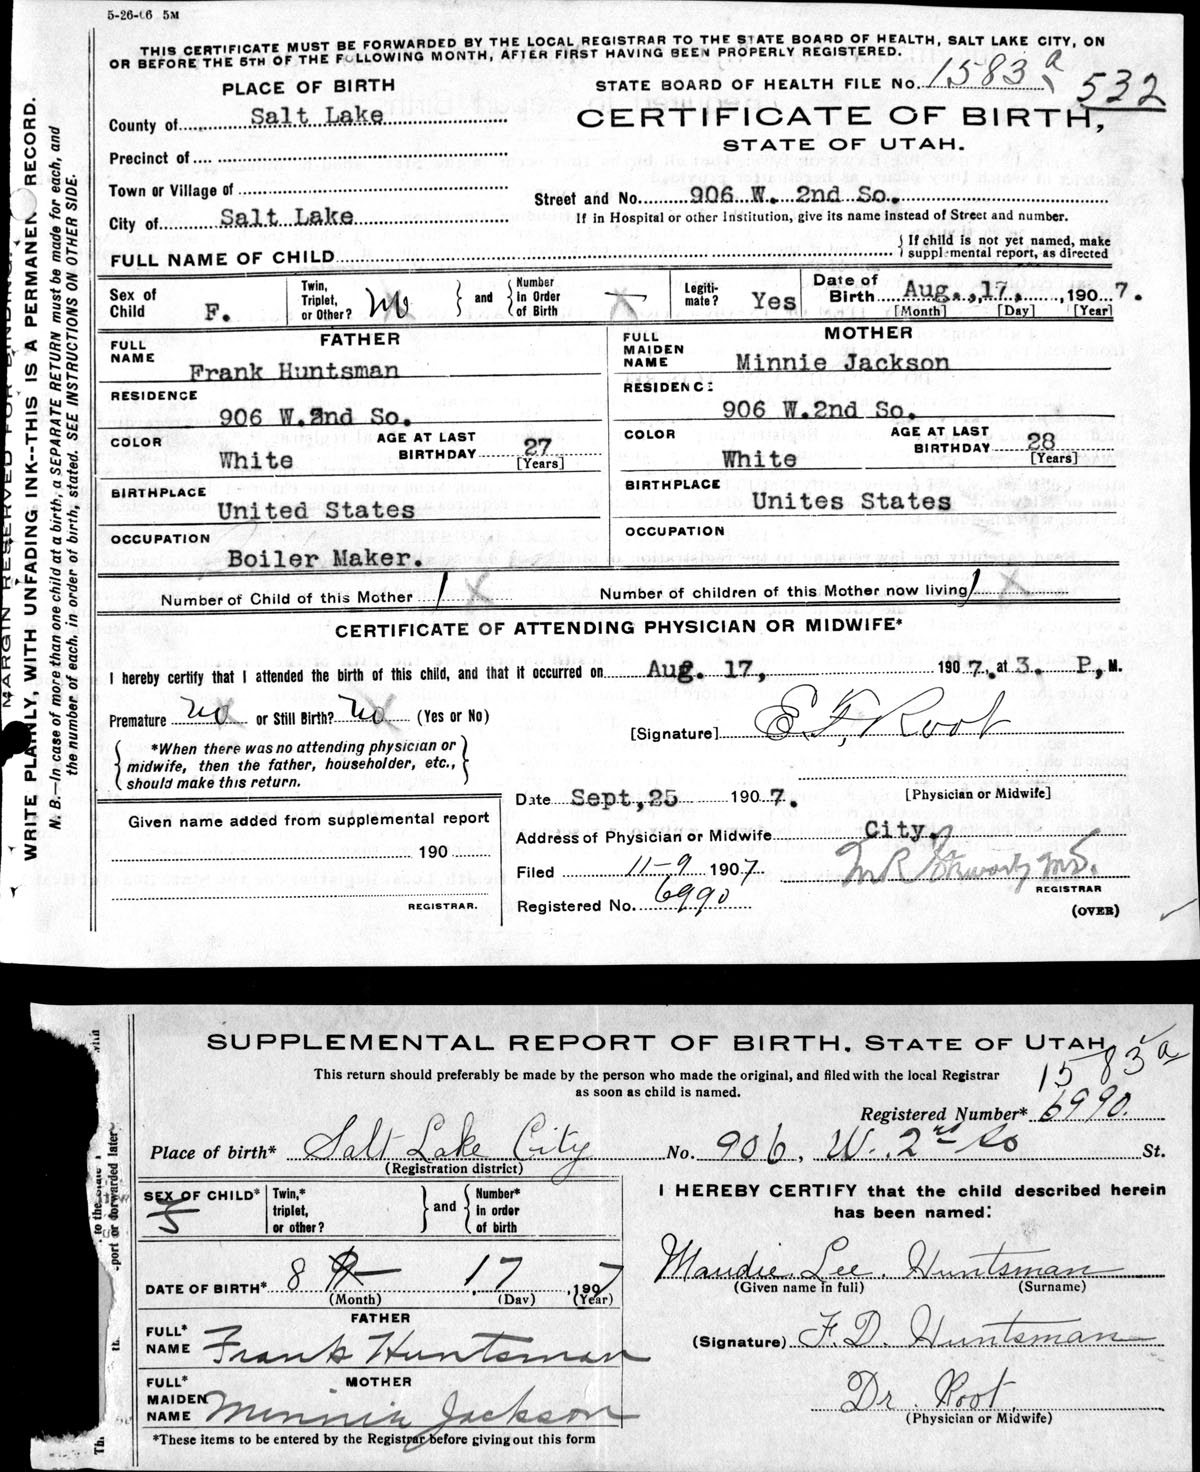 5-26-06 5M
THIS CERTIFICATE MUST BE FORWARDED BY THE LOCAL REGISTRAR TO THE STATE BOARD OF HEALTH, SALT LAKE CITY, ON
OR BEFORE THE 5TH OF THE FOLLOWING MONTH, AFTER FIRST HAVING BEEN PROPERLY REGISTERED.
MARGIN RESERVED FOR BINDING.
WRITE PLAINLY, WITH UNFADING INK--THIS IS A PERMANENT RECORD.
N. B.—In case of more than one child at a birth, a SEPARATE RETURN must be made for each, and
the number of each, in order of birth, stated. SEE INSTRUCTIONS ON OTHER SIDE.
PLACE OF BIRTH
STATE BOARD OF HEALTH FILE No. 1583 a 532
County of Salt Lake
CERTIFICATE OF BIRTH,
STATE OF UTAH.
Precinct of
Town or Village of
Street and No. 906 W. 2nd So.
City of Salt Lake
If in Hospital or other Institution, give its name instead of Street and number.
FULL NAME OF CHILD
If child is not yet named, make
supplemental report, as directed
Sex of Child F.
Twin, Triplet, or Other? No
and
Number in Order of Birth
Legiti-mate? Yes
Date of Birth Aug. 17, 1907.
[Month] [Day] [Year]
FATHER
FULL NAME Frank Huntsman
RESIDENCE
906 W. 2nd So.
COLOR White
AGE AT LAST BIRTHDAY 27 [Years]
BIRTHPLACE
United States
OCCUPATION
Boiler Maker.
MOTHER
FULL MAIDEN NAME Minnie Jackson
RESIDENCE
906 W.2nd So.
COLOR White
AGE AT LAST BIRTHDAY 28 [Years]
BIRTHPLACE
Unites States
OCCUPATION
Number of Child of this Mother 1 X
Number of children of this Mother now living 1 X
CERTIFICATE OF ATTENDING PHYSICIAN OR MIDWIFE*
I hereby certify that I attended the birth of this child, and that it occurred on Aug. 17, 1907, at 3. P, M.
Premature no or Still Birth? no (Yes or No)
[Signature] E. F. Root
*When there was no attending physician or
midwife, then the father, householder, etc.,
should make this return.
[Physician or Midwife]
Date Sept, 25 1907.
Given name added from supplemental report
190
REGISTRAR.
Address of Physician or Midwife City.
Filed 11-9 1907
REGISTRAR
Registered No. 6990
(OVER)
SUPPLEMENTAL REPORT OF BIRTH. STATE OF UTAH
This return should preferably be made by the person who made the original, and filed with the local Registrar
as soon as child is named.
1583 a
Registered Number* 6990.
Place of birth* Salt Lake City No. 906, W. 2nd So St.
(Registration district)
SEX OF CHILD* F
Twin,* triplet, or other?
and
Number* in order of birth
DATE OF BIRTH* 8 17, 1907
(Month) (Day) (Year)
FATHER
FULL* NAME Frank Huntsman
MOTHER
FULL* MAIDEN NAME Minnie Jackson
*These items to be entered by the Registrar before giving out this form
I HEREBY CERTIFY that the child described herein
has been named:
Maudie Lee Huntsman
(Given name in full) (Surname)
(Signature) F. D. Huntsman
Dr. Root
(Physician or Midwife)